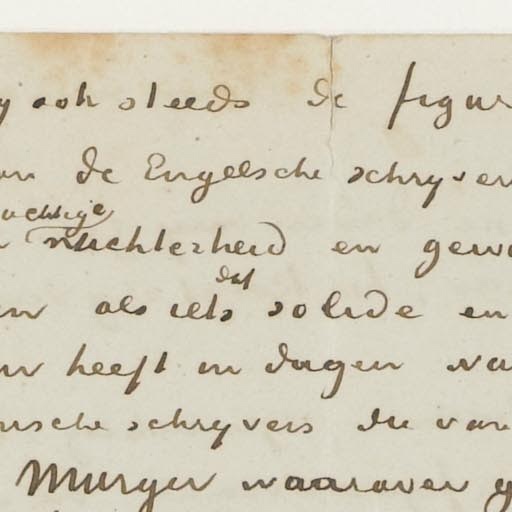 y ook steeds de figur
an de Engelsche schryver
achtige
nuchterheid en gewo
dat
en als iets solide en
heeft in dagen va
nsche schryvers die van
Murger waarover g